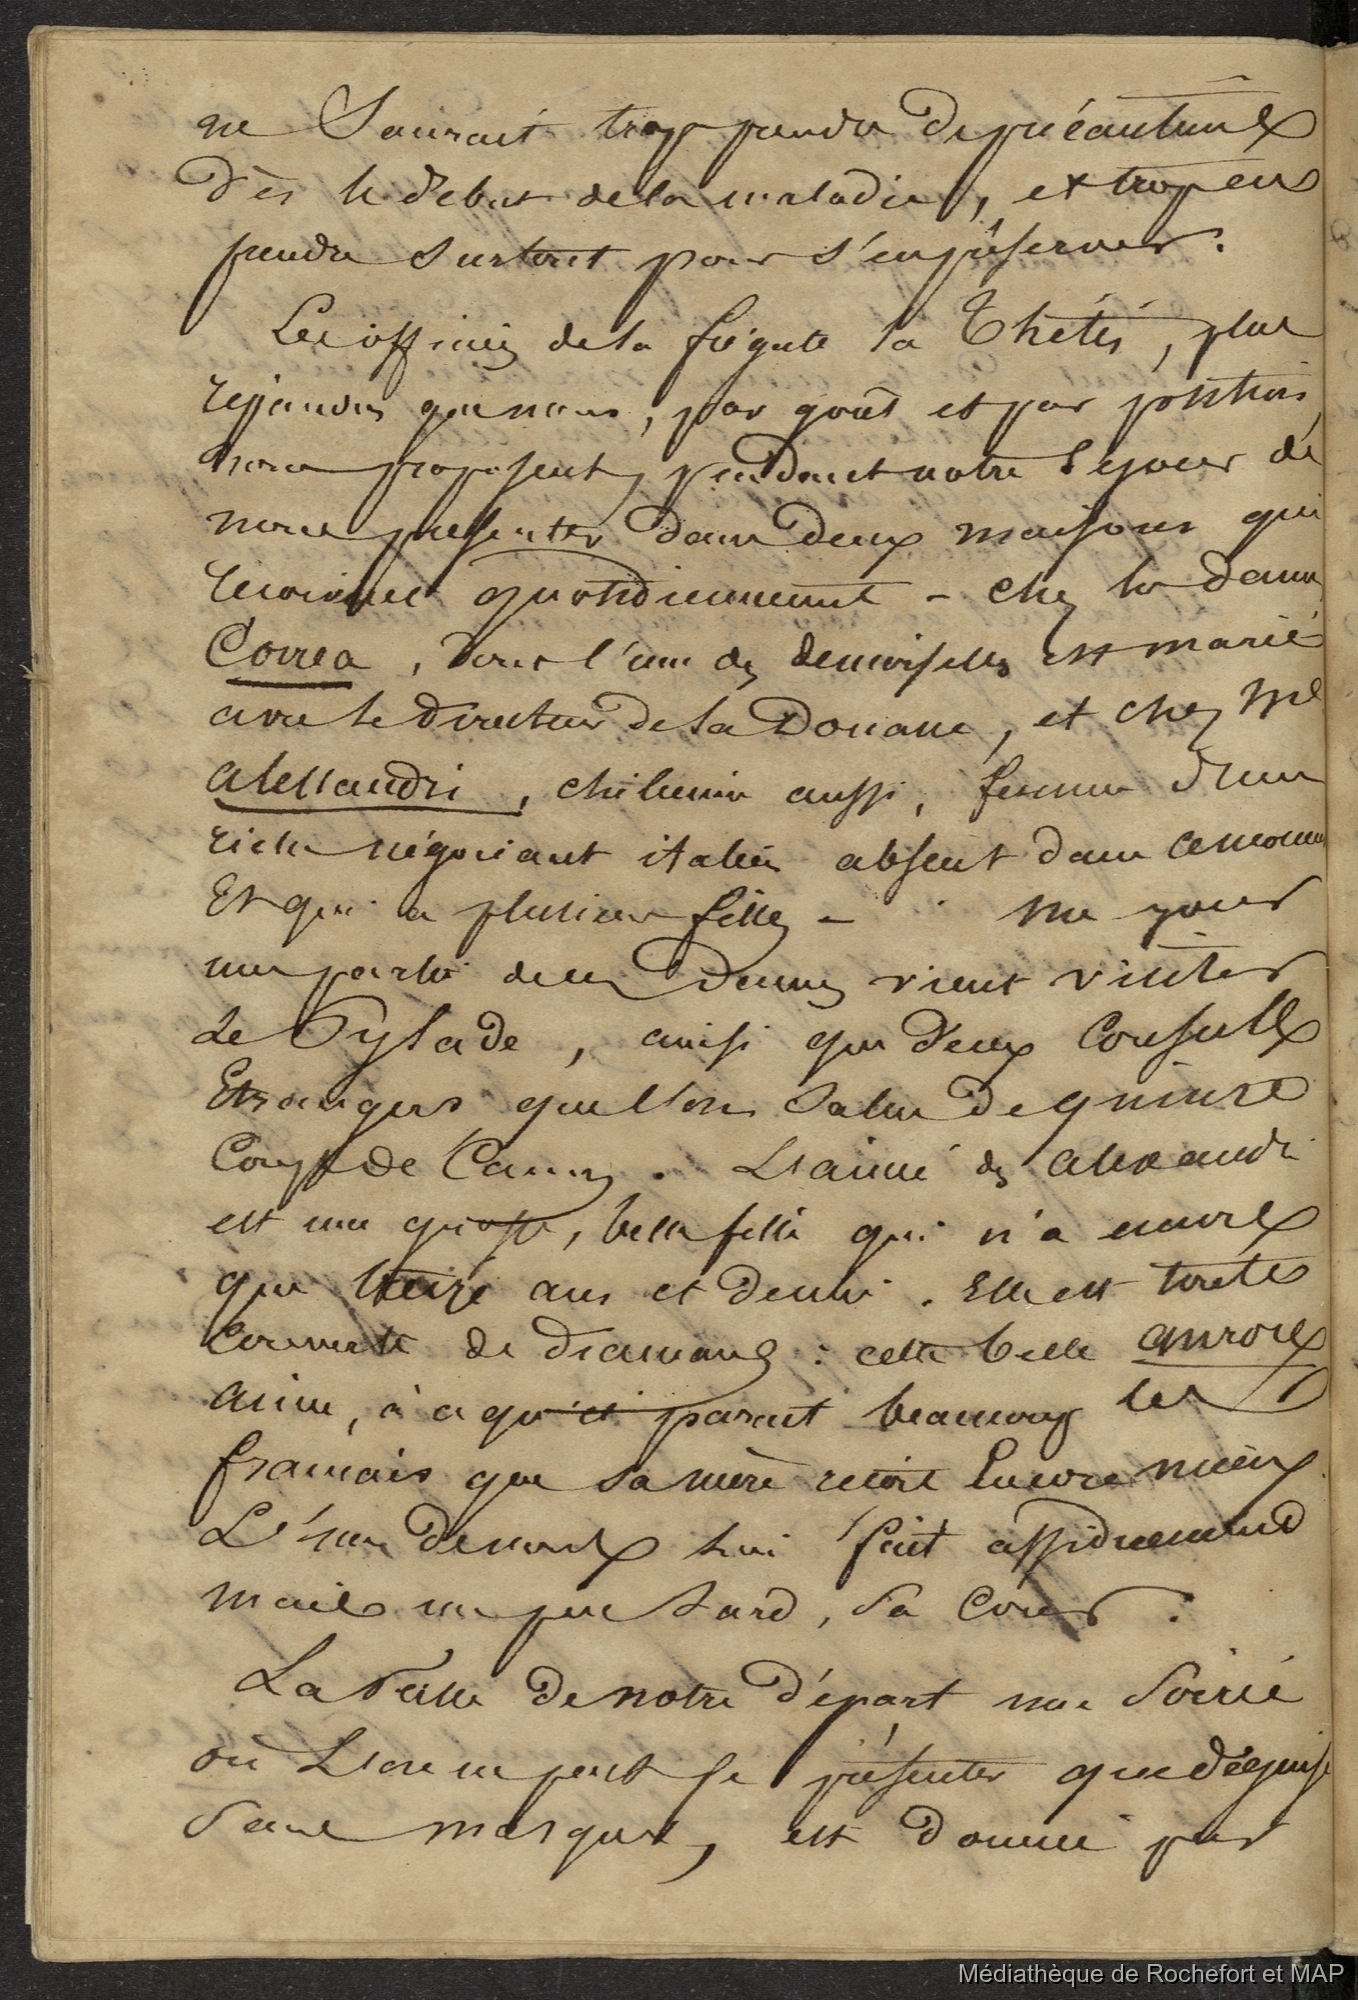 ne Saurait trop prendre de précautions
Dès le début de la maladie, et trop en
prendre Surtout pour s'en préserver.
Les officiers de la frégate la Thétis, plus
répandus que nous, par goût et par position,
nous proposent, pendant notre Séjour de
nous présenter dans deux maisons qui
reçoivent quotidiennement – chez la dame
Correa, dont l'une des demoiselles est marié
avec le Directeur de la Douane, et chez Me
Alessandri, chilienne aussi, femme d'un
riche négociant italien absent dans ce moment
Et qui a plusieurs filles – un jour
une partie de ces Dames vient visiter
Le Pylade, ainsi que deux Consuls
Etrangers que l'on Salue de quinze
Coups de Canon. L'ainée des Alexandri
est une grosse, belle fille qui n'a encore
que treize ans et demi. Elle est toute
Couverte de diamans : cette belle aurore
aime, à ce qu'il parait beaucoup les
français que sa mère reçoit Encore mieux
L'un de nous lui fait assiduement
mais un peu tard, Sa Cour.
La veille de notre départ une Soirée
où L'on ne peut se présenter que déguisé
Sans masque, est donnée par
Médiathèque de Rochefort et MAP